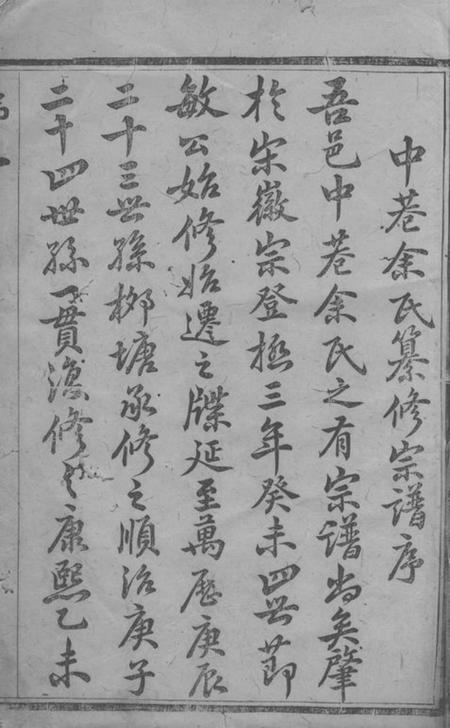 中巷余氏纂修宗譜序
吾邑中巷余氏之有宗譜尚矣肇
於宋徽宗登極三年癸未四世節
敏公始修始遷之牒延至萬厯庚辰
二十三世孫柳塘承修之順治庚子
二十四世孫一貫復修之康熙乙未